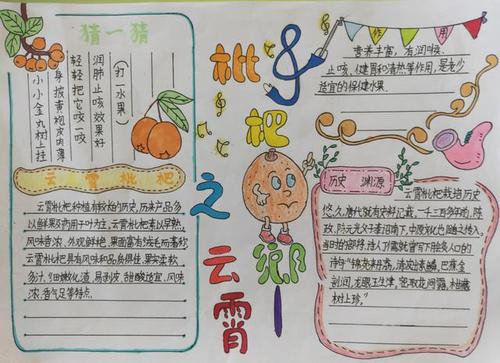 猜一猜
（打一水果）
润肺止咳效果好
轻轻把它咬一咬
身披黄袍皮肉薄
小小金丸树上挂
云霄枇杷
云霄枇杷种植有较长的历史，历来产品多
以鲜果
云霄枇杷素以早熟、
风味香浓、外观鲜艳、果面富有茸毛而著称
云霄枇杷具有风味和品质俱佳、果实柔软
多汁、细嫩化渣、易剥皮、甜酸适宜、风味
浓、香气足等特点
枇杷之云霄
作用
营养丰富，有润咳、
止咳、健胃和清热等作用，是老少
适宜的保健水果
历史渊源
云霄枇杷栽培历史
悠久，唐代就有史料记载，一千三百多年前，陈
政、陈元光父子奉诏南下，中原文化也随之传入，
当时的部将、诗人丁儒就曾写下脍炙人口的
诗句
龙眼玉生津，蜜取花间露，柑藏
树上珍。"